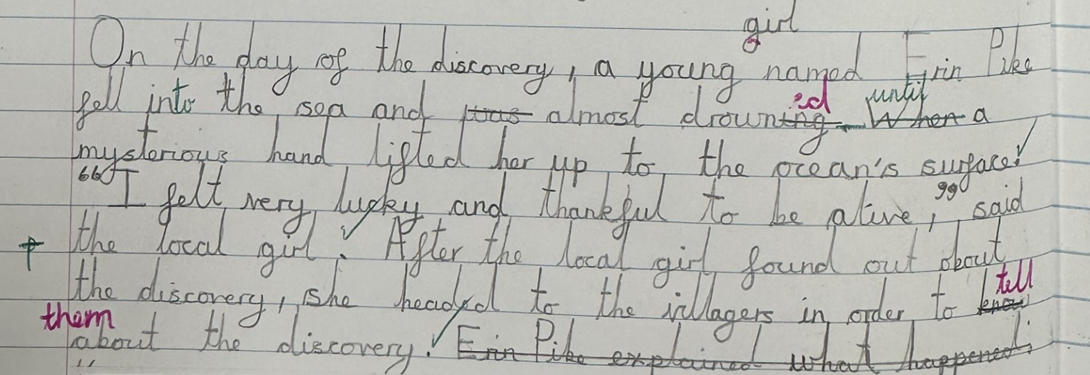 girl
On the day of the discovery, a young named Erin Pike
fell into the sea and was almost drowning ed. When until a
mysterious hand lifted her up to the ocean's surface!
"I felt very lucky and thankful to be alive," said
the local girl. After the local girl found out about
the discovery, she headed to the villagers in order to know tell
them
about the discovery. Erin Pike explained what happened:
"